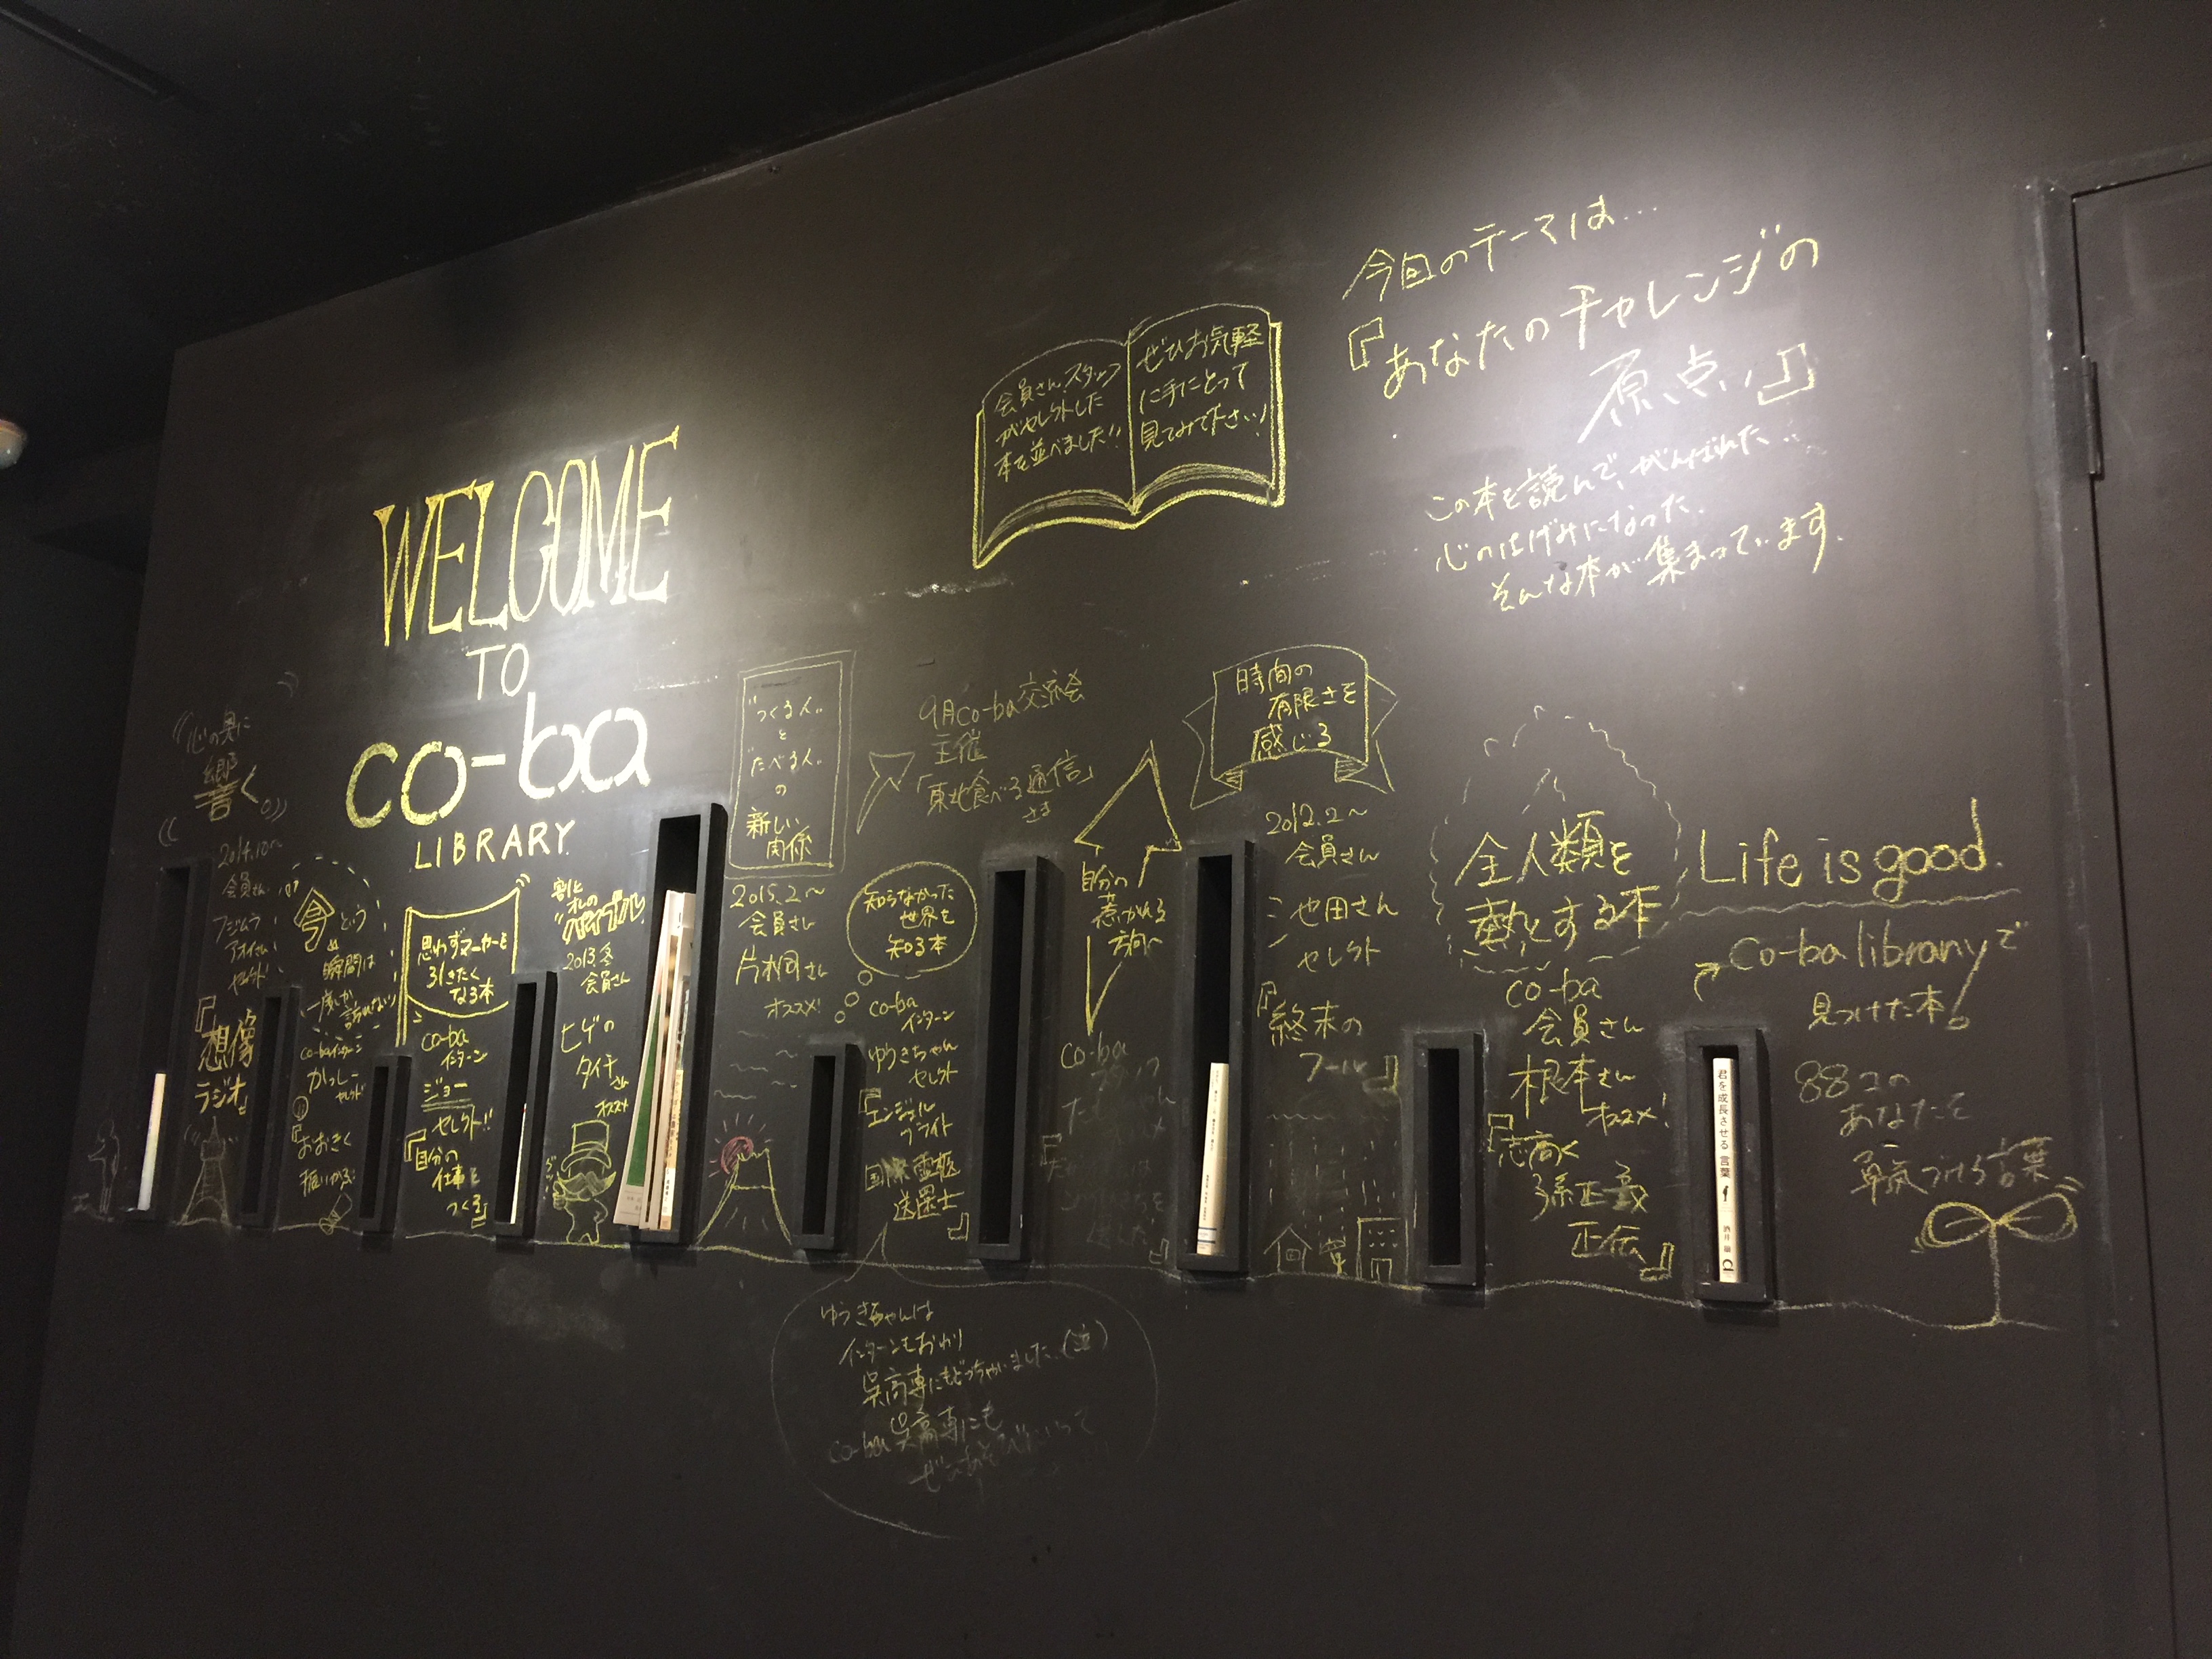 WELCOME
TO
co-ba
LIBRARY
会員さん、スタッフ
がセレクトした
本を並べました!!
ぜひお気軽
に手にとって
見てみて下さい!
今回のテーマは…
『あなたのチャレンジの
原点』
この本を読んで、がんばれた…
心のはげみになった.
そんな本が集まっています.
心の奥に
響く。
2014.10~
会員さん
フジムラ
アオイさん
セレクト!
『想像
ラジオ』
今という
瞬間は
一度しか
訪れない!
co-baインターン
かっしー
セレクト
『おおきく
振りかぶ
思わずマーカーを
引きたく
なる本
co-ba
インターン
ジョー
セレクト!!
『自分の
仕事を
つくる』
割と
オレの
"バイブル"
2013.冬
会員さん
ヒゲの
タイチさん
オススメ
"つくる人"
と
"たべる人"
の
新しい
関係
2015.2~
会員さん
片桐さん
オススメ!
9月co-ba交流会
主催
「東北食べる通信」
さま
知らなかった
世界を
知る本
co-ba
インターン
ゆうきちゃん
セレクト
『エンジェル
フライト
国際霊柩
送還士』
ゆうきちゃんは
インターンをおわり
呉高専にもどっちゃいました.(泣)
co-ba呉高専にも
ぜひあそびにいって
自分の
惹かれる
方向へ
co-ba
時間の
有限さを
感じる
2012.2~
会員さん
池田さん
セレクト
『終末の
フール』
全人類を
熱くする本
co-ba
会員さん
根本さん
オススメ!
『志高く
孫正義
正伝』
Life is good.
co-ba libraryで
見つけた本!
88コの
あなたを
勇気づける言葉
君を成長させる言葉
酒井 穣